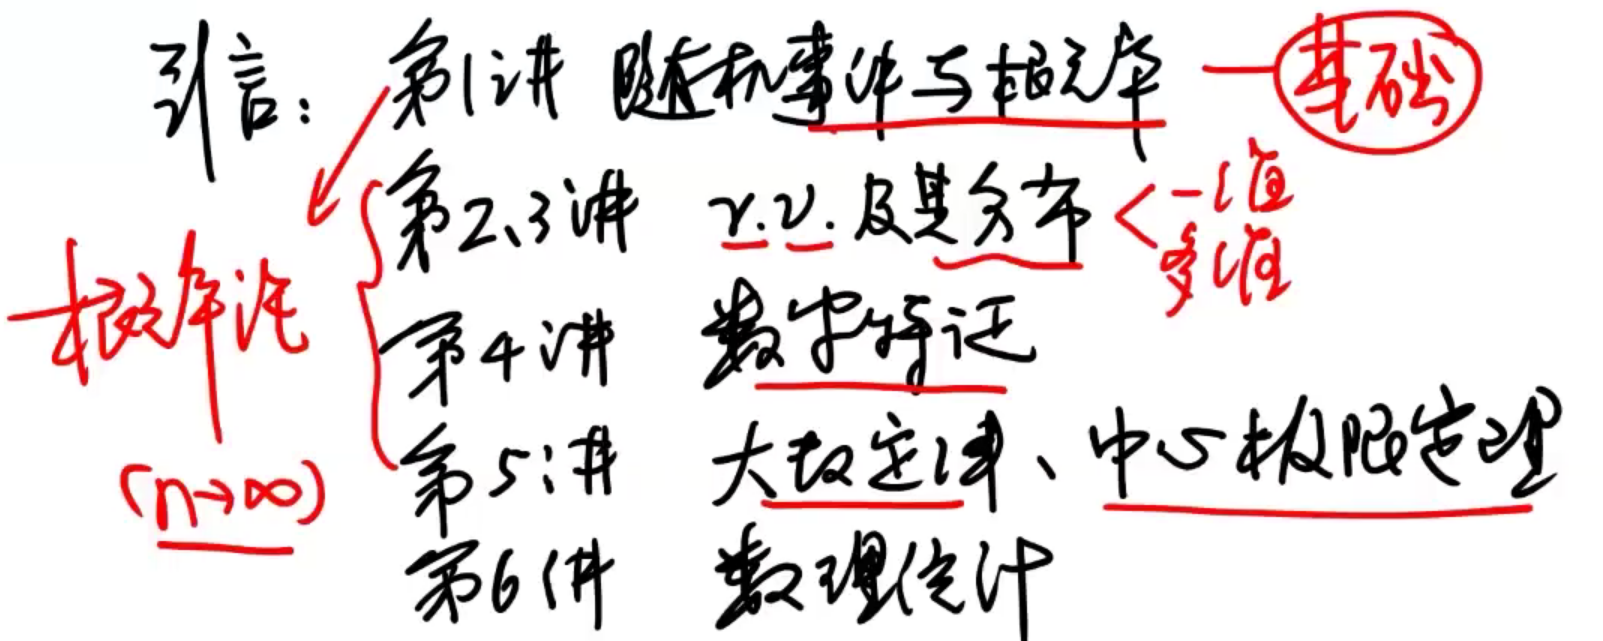 引言: 第1讲 随机事件与概率 — 基础
第2、3讲 r.v.及其分布 < 一维
多维
概率论
第4讲 数字特征
第5讲 大数定律、中心极限定理
(n→∞)
第6讲 数理统计